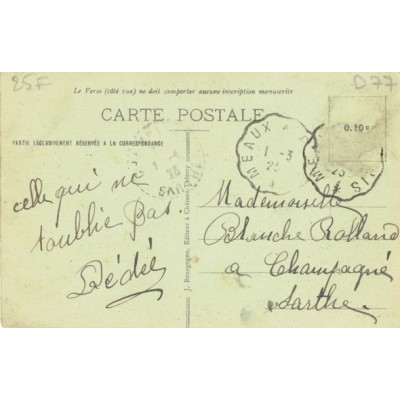 25F
D77
Le Verso (côté vue) ne doit comporter aucune inscription manuscrite
CARTE POSTALE
PARTIE EXCLUSIVEMENT RÉSERVÉE A LA CORRESPONDANCE
MEAUX A
1-3
0.10c
celle qui ne
t'oublie pas.
Dédée
J. Bourgogne, Editeur à Château-Thierry
Mademoiselle
Blanche Rolland
a Champagné
Sarthe.